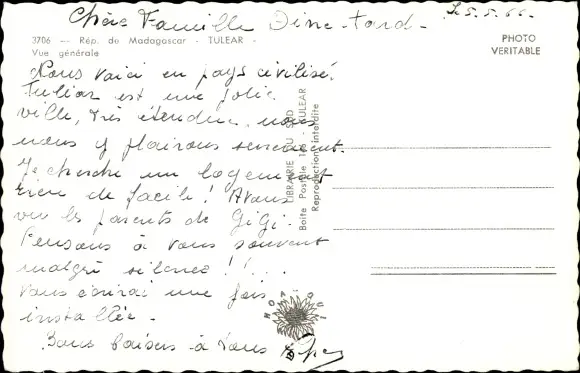 Chère Famille
Le 5.5.66.
3706 — Rép. de Madagascar - TULEAR -
Vue générale
PHOTO
VERITABLE
Nous voici en pays civilisé.
Tuléar est une jolie
ville, très étendue, nous
nous y plairons sûrement.
Je cherche un logement
rien de facile! Avons
vu les parents de GiGi.
Pensons à vous souvent
malgré silence!!...
Vous écrirai une fois
installée.
Bons baisers à tous
LIBRAIRIE DU SUD
Boite Postale - TULEAR
Reproduction interdite